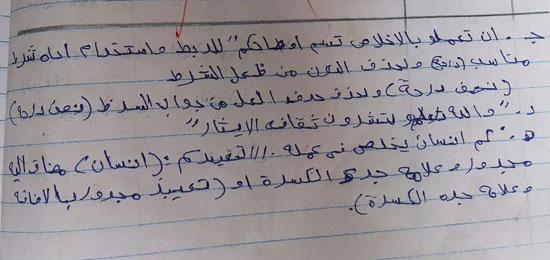 جـ - ان تعملو بالاخلاص تسم اوطانكم" للربط واستخدام اداه شرط
مناسب (درجة) ولحذف النون من فعل الشرط
(نصف درجة) وحذف حرف العلة من جواب الشرط (نصف درجة)
د. "والله لتنشرون ثقافه الايثار"
هـ. كم انسان يخلص في عمله. /// تمييزكم: (انسان) مضاف اليه
مجرور وعلامة جره الكسرة او (تمييز مجرور بالاضافة
وعلامة جره الكسرة).